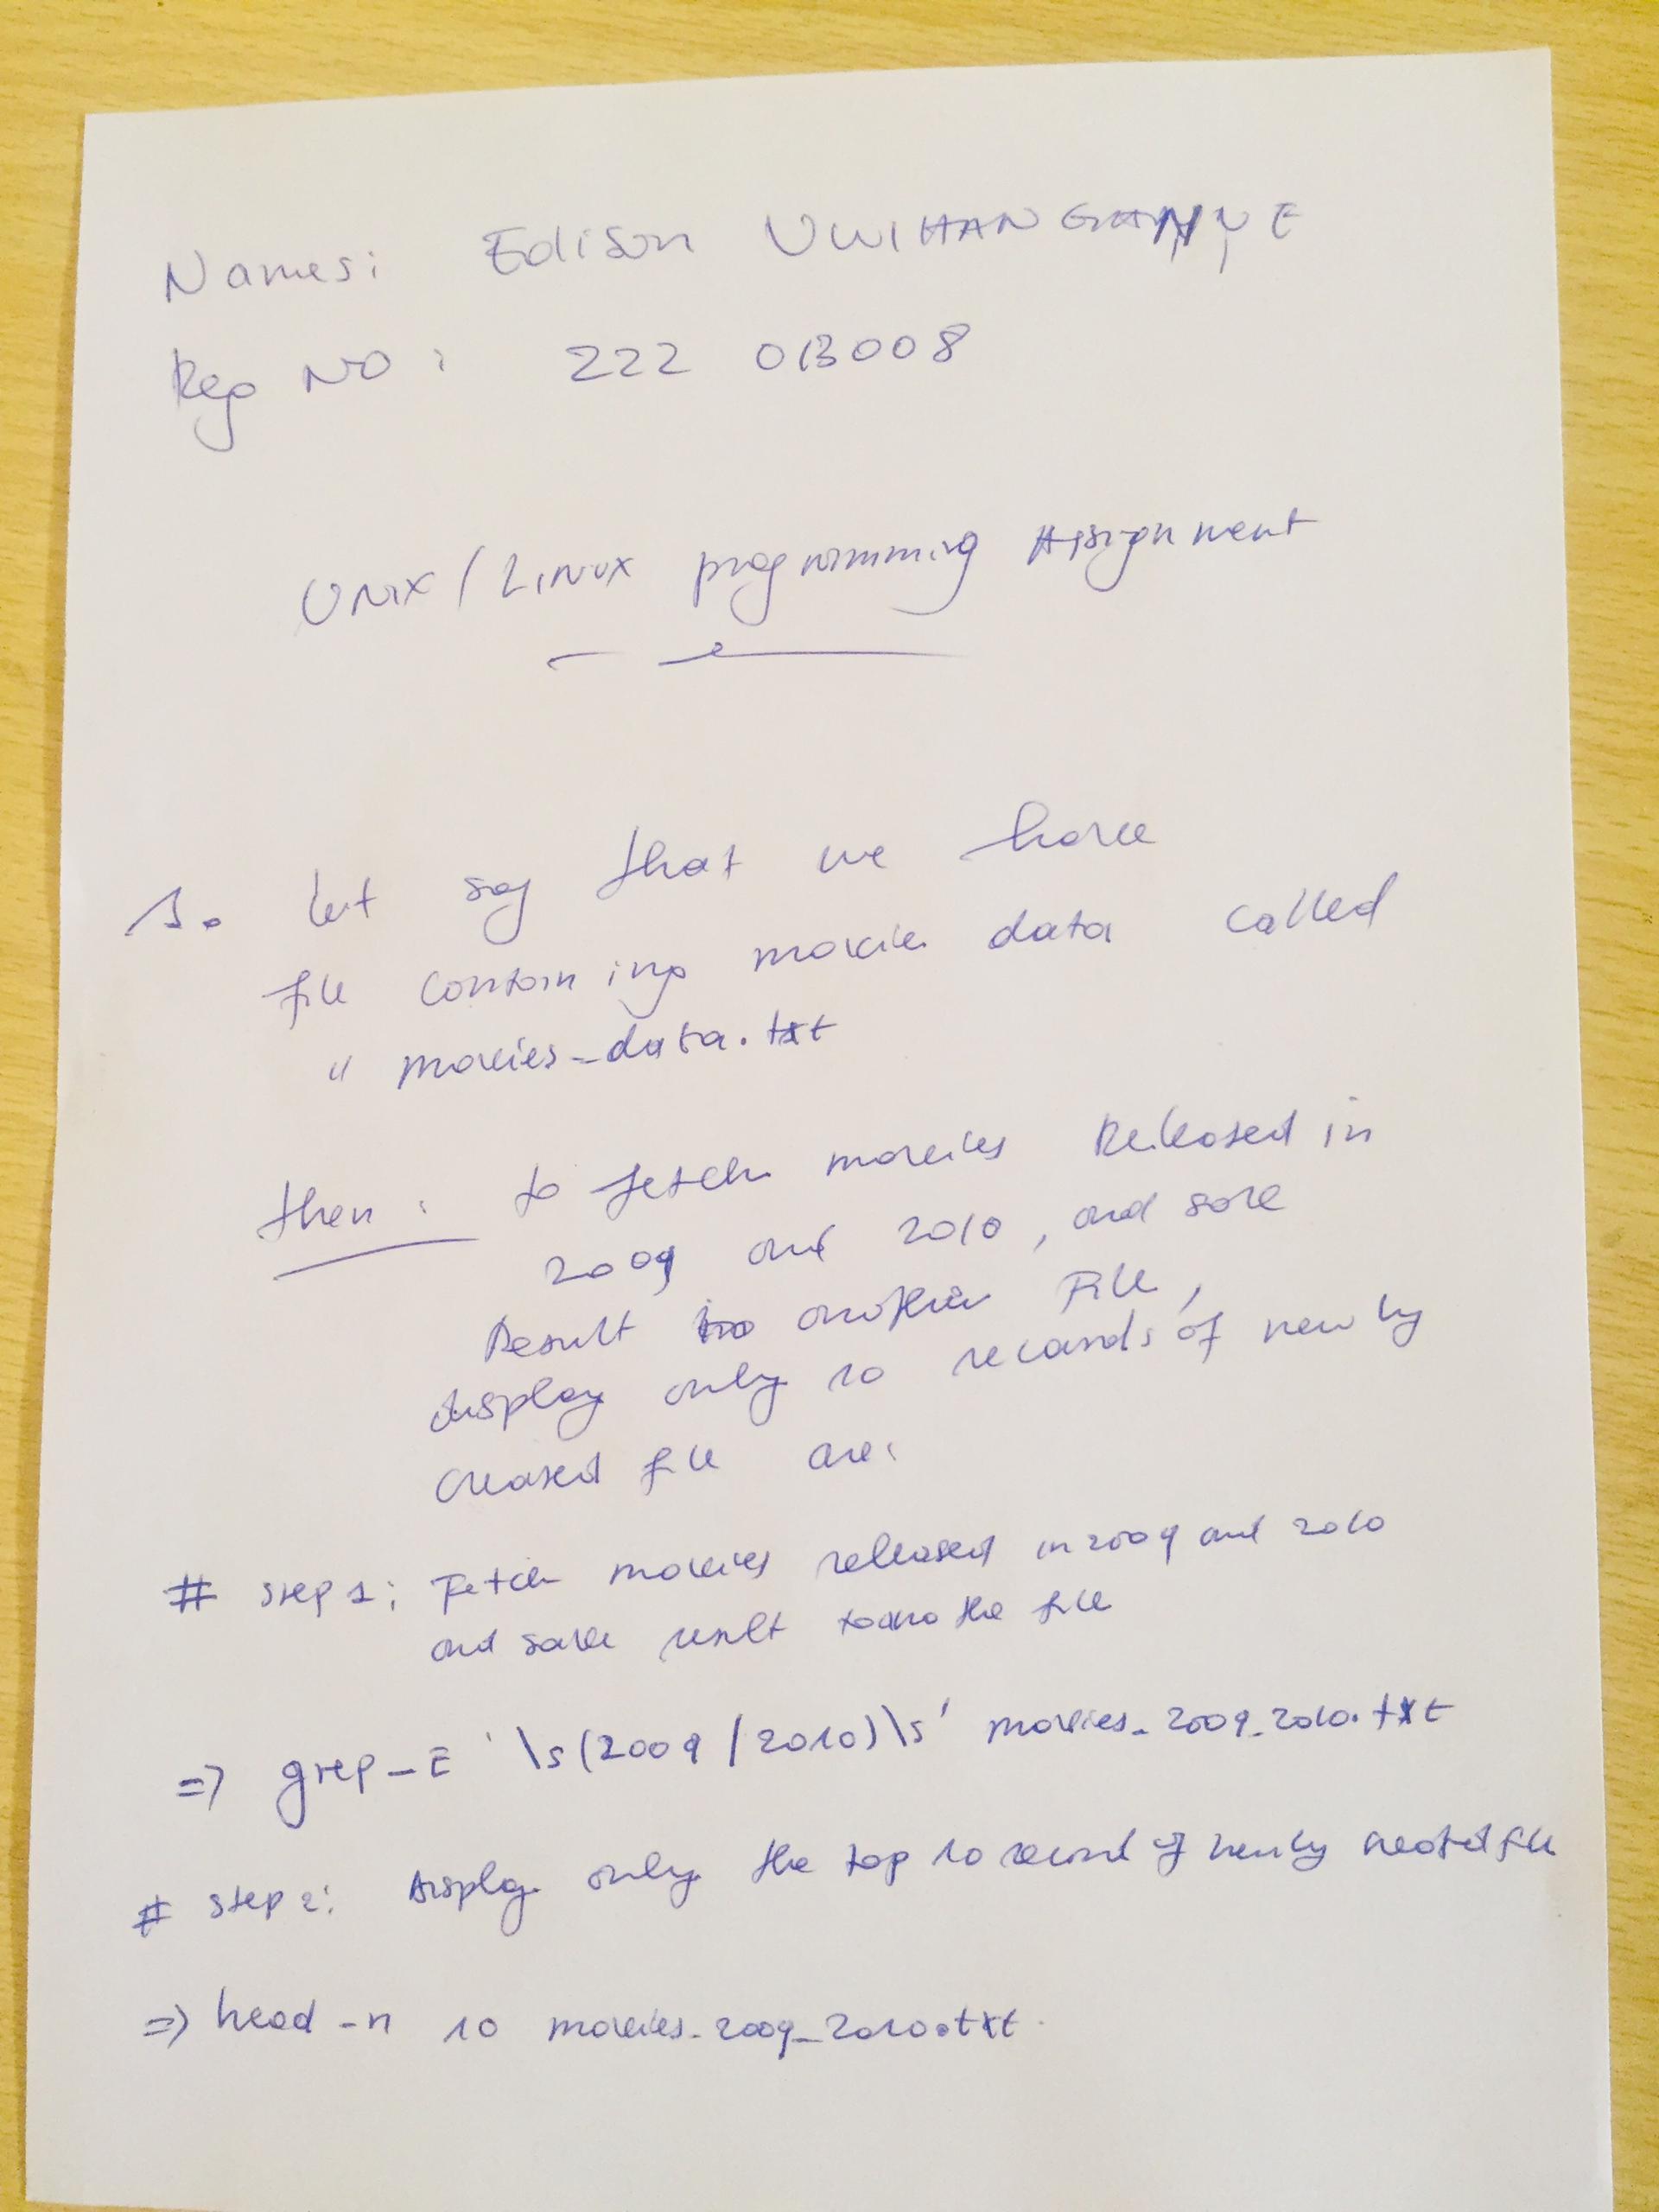 Names: Edison UWIHANGANYE
Reg NO: 222 013008
UNIX/LINUX programming Assignment
1. let say that we have
file containing movie data called
" movies_data.txt
then: to fetch movies Released in
2009 and 2010, and save
Result to another File,
display only 10 records of newly
created file are:
# step 1: Fetch movies released in 2009 and 2010
and save result to ano the file
=> grep -E '\s(2009|2010)\s' movies_2009_2010.txt
# step 2: Display only the top 10 record of newly created file
=> head -n 10 movies_2009_2010.txt.